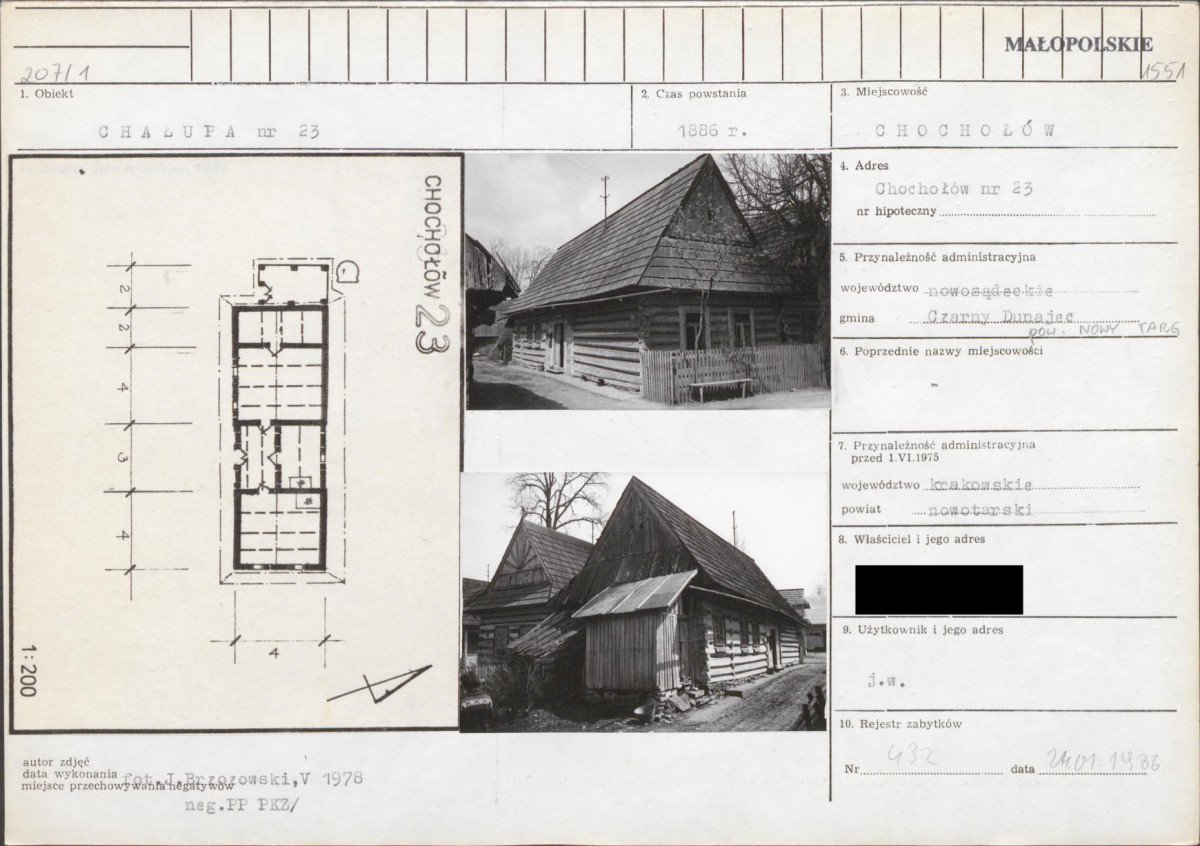 MAŁOPOLSKIE
207/1
1551
1. Obiekt
CHAŁUPA nr 23
2. Czas powstania
1886 r.
3. Miejscowość
CHOCHOŁÓW
4. Adres
Chochołów nr 23
nr hipoteczny
5. Przynależność administracyjna
województwo nowosądeckie
gmina Czarny Dunajec
pow. NOWY TARG
6. Poprzednie nazwy miejscowości
-
7. Przynależność administracyjna
przed 1.VI.1975
województwo krakowskie
powiat nowotarski
8. Właściciel i jego adres
9. Użytkownik i jego adres
j.w.
10. Rejestr zabytków
Nr 432 data 24.01.1986
CHOCHOŁÓW 23
2
2
4
3
4
4
1:200
autor zdjęć
data wykonania fot.J.Brzozowski,V 1978
miejsce przechowywania negatywów
neg.PP PKZ/